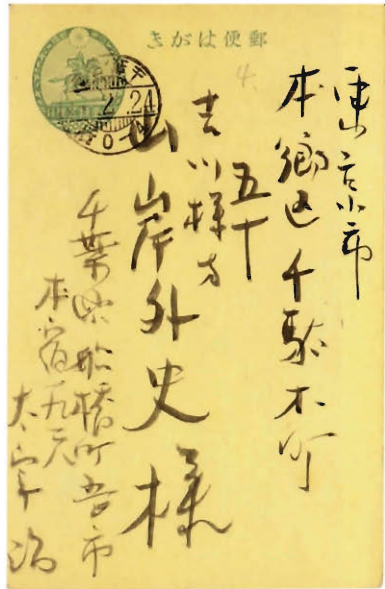 郵便はがき
2.24
東京市
本郷区千駄木町
五十
吉川様方
山岸外史様
千葉県船橋町五日市
本宿一九二八
太宰治